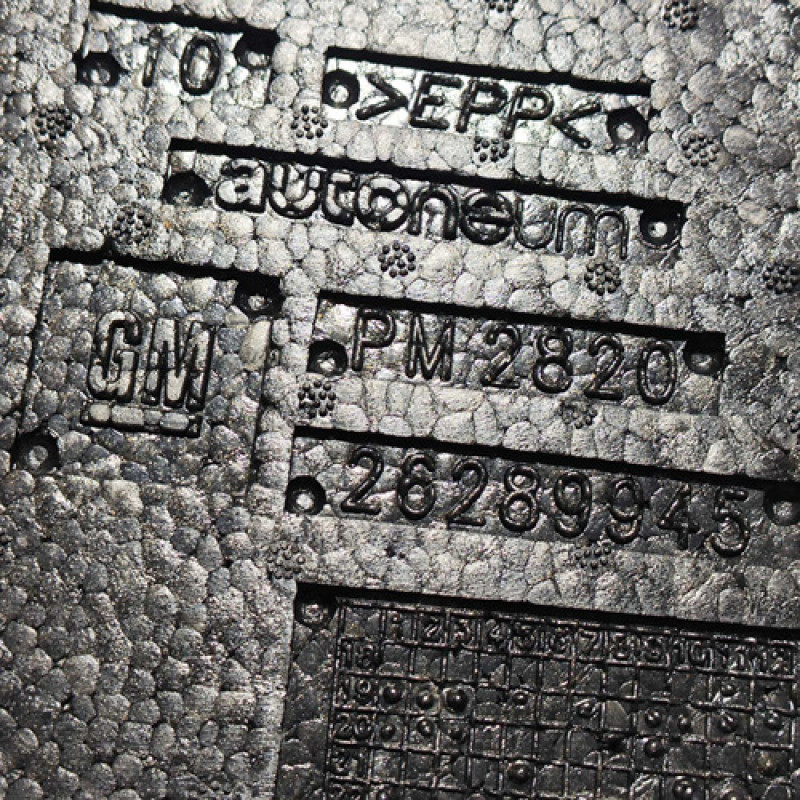 10
>EPP<
autoneum
GM
PM 2820
26289945
1 2 3 4 5 6 7 8 9 10 11 12
18
19
20
21